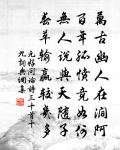 萬古幽人在澗阿
百年孤憤竟如何
無人說與天隨子
春草輸贏較幾多
元好問論詩三十首十
九詞典網集